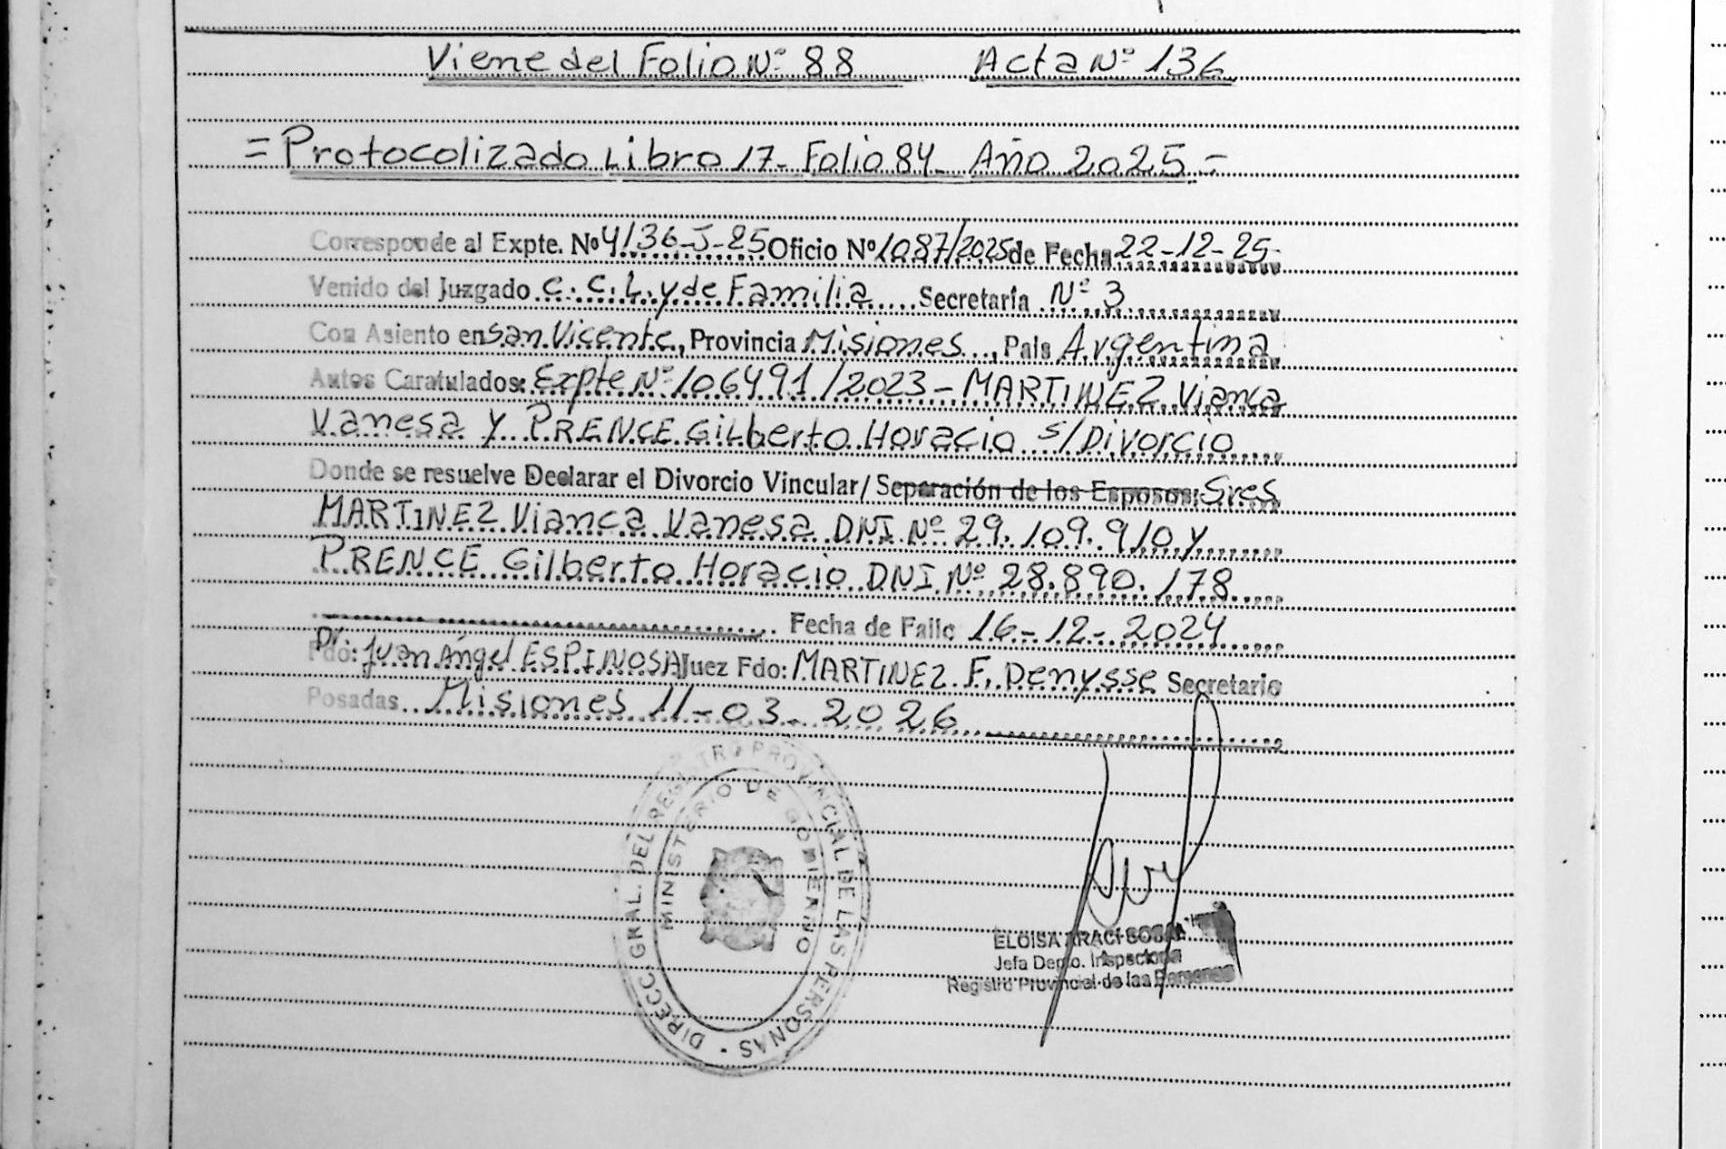 Viene del Folio Nº 88 Acta Nº 136
= Protocolizado Libro 17- Folio 84- Año 2025 -=
Corresponde al Expte. Nº 4136-J-25 Oficio Nº 1087/2025 de Fecha 22-12-25-
Venido del Juzgado C. C. L. y de Familia Secretaría Nº 3
Con Asiento en San Vicente, Provincia Misiones, País Argentina
Autos Caratulados: Expte Nº 106491/2023 - MARTINEZ Vianca
Vanesa y PRENCE Gilberto Horacio s/Divorcio
Donde se resuelve Declarar el Divorcio Vincular/ Separación de los Esposos: Sres
MARTINEZ Vianca Vanesa DNI Nº 29.109.910 y
PRENCE Gilberto Horacio DNI Nº 28.890.178
Fecha de Fallo 16-12-2024
Fdo: Dr. Juan Ángel ESPINOSA Juez Fdo: MARTINEZ F. Denysse Secretario
Posadas Misiones 11-03-2026
DIRECC. GRAL. DEL REGISTRO PROVINCIAL DE LAS PERSONAS -
MINISTERIO DE GOBIERNO
ELOISA ARACI SOSA
Jefa Depto. Inspectoria
Registro Provincial de las Personas